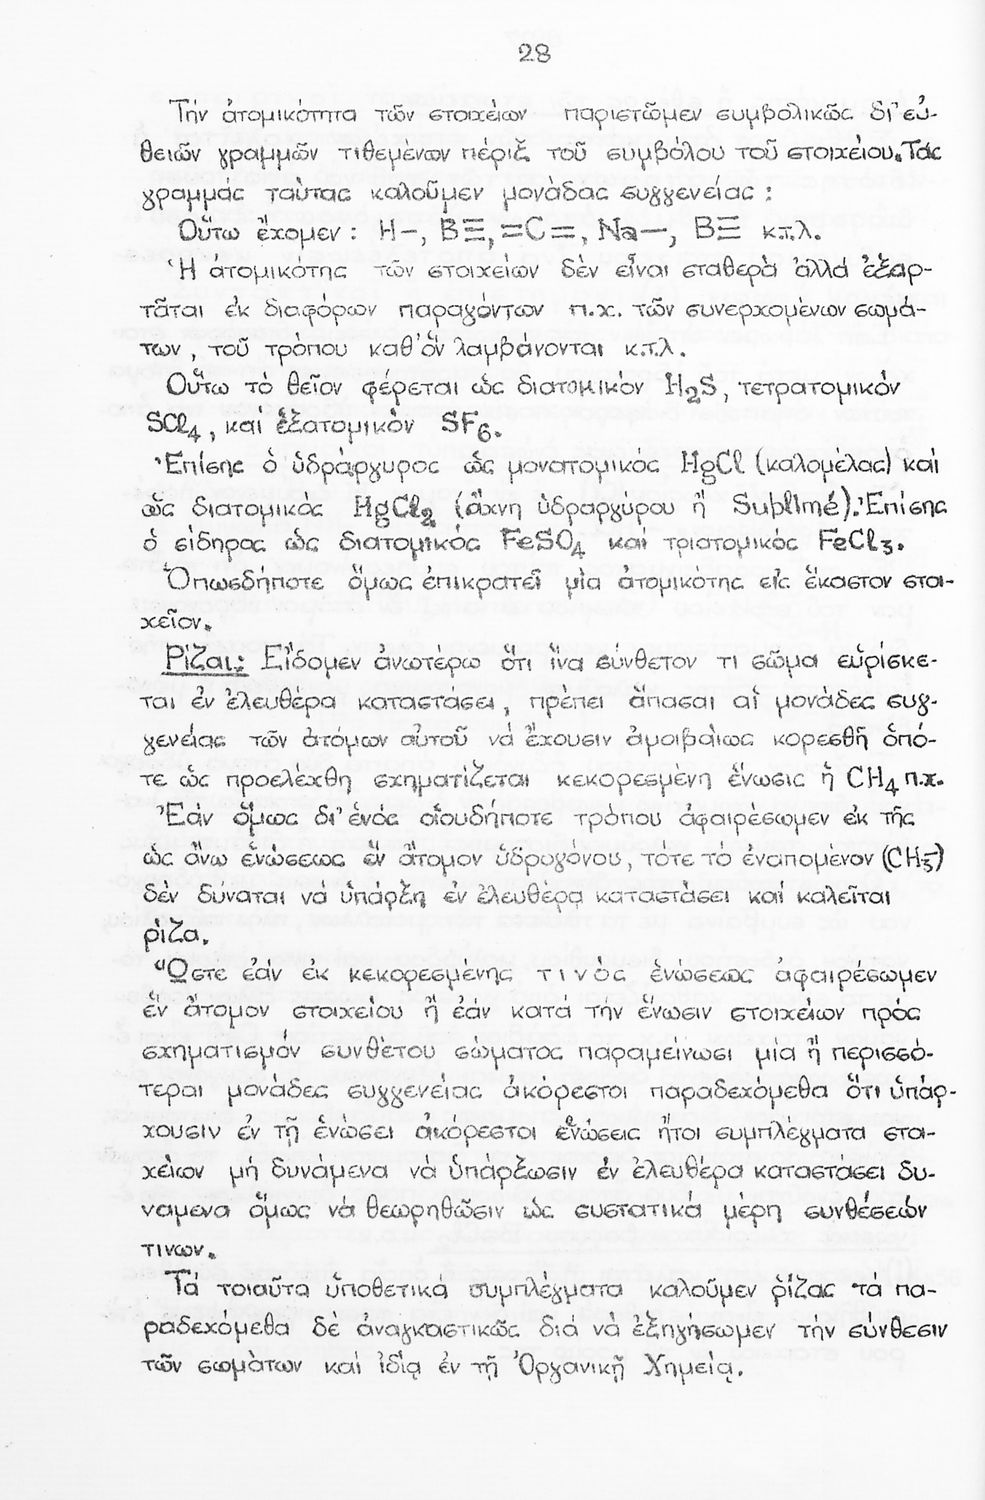 28
Τήν ἀτομικότητα τῶν στοιχείων παριστῶμεν συμβολικῶς δι' εὐ-
θειῶν γραμμῶν τιθεμένων πέριξ τοῦ συμβόλου τοῦ στοιχείου. Τάς
γραμμάς ταύτας καλοῦμεν μονάδας συγγενείας :
Οὕτω ἔχομεν : H–, B≡, =C=, Na—, B≡ κ.τ.λ.
Ἡ ἀτομικότης τῶν στοιχείων δέν εἶναι σταθερά ἀλλά ἐξαρ-
τᾶται ἐκ διαφόρων παραγόντων π.χ. τῶν συνερχομένων σωμά-
των, τοῦ τρόπου καθ' ὅν λαμβάνονται κ.τ.λ.
Οὕτω τό θεῖον φέρεται ὡς διατομικόν H₂S, τετρατομικόν
SCl₄, καί ἑξατομικόν SF₆.
Ἐπίσης ὁ ὑδράργυρος ὡς μονατομικός HgCl (καλομέλας) καί
ὡς διατομικός HgCl₂ (ἄχνη ὑδραργύρου ἤ Sublimé). Ἐπίσης
ὁ σίδηρος ὡς διατομικός FeSO₄ καί τριατομικός FeCl₃.
Ὁπωσδήποτε ὅμως ἐπικρατεῖ μία ἀτομικότης εἰς ἕκαστον στοι-
χεῖον.
Ρίζαι: Εἴδομεν ἀνωτέρω ὅτι ἵνα σύνθετον τι σῶμα εὑρίσκε-
ται ἐν ἐλευθέρα καταστάσει, πρέπει ἅπασαι αἱ μονάδες συγ-
γενείας τῶν ἀτόμων αὐτοῦ νά ἔχουσιν ἀμοιβαίως κορεσθῆ ὁπό-
τε ὡς προελέχθη σχηματίζεται κεκορεσμένη ἕνωσις ἡ CH₄ π.χ.
Ἐάν ὅμως δι' ἑνός οἱουδήποτε τρόπου ἀφαιρέσωμεν ἐκ τῆς
ὡς ἄνω ἑνώσεως ἕν ἄτομον ὑδρογόνου, τότε τό ἐναπομένον (CH₃)
δέν δύναται νά ὑπάρξη ἐν ἐλευθέρᾳ καταστάσει καί καλεῖται
ρίζα.
Ὥστε ἐάν ἐκ κεκορεσμένης τινός ἑνώσεως ἀφαιρέσωμεν
ἕν ἄτομον στοιχείου ἤ ἐάν κατά τήν ἕνωσιν στοιχείων πρός
σχηματισμόν συνθέτου σώματος παραμείνωσι μία ἤ περισσό-
τεραι μονάδες συγγενείας ἀκόρεστοι παραδεχόμεθα ὅτι ὑπάρ-
χουσιν ἐν τῇ ἑνώσει ἀκόρεστοι ἑνώσεις ἤτοι συμπλέγματα στοι-
χείων μή δυνάμενα νά ὑπάρξωσιν ἐν ἐλευθέρα καταστάσει δυ-
νάμενα ὅμως νά θεωρηθῶσιν ὡς συστατικά μέρη συνθέσεών
τινων.
Τά τοιαῦτα ὑποθετικά συμπλέγματα καλοῦμεν ῥίζας τά πα-
ραδεχόμεθα δέ ἀναγκαστικῶς διά νά ἐξηγήσωμεν τήν σύνθεσιν
τῶν σωμάτων καί ἰδίᾳ ἐν τῇ Ὀργανικῇ Χημείᾳ.